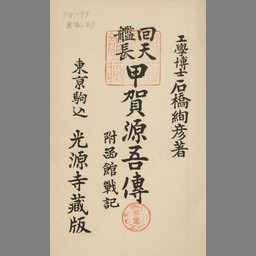 工學博士石橋絢彦著
回天
艦長
甲賀源吾傳
附函館戰記
東京駒込 光源寺藏版